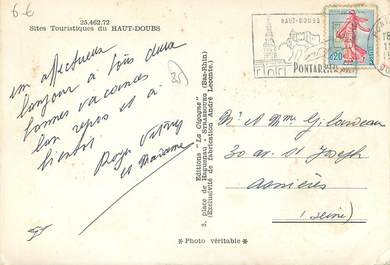 6-6
25.462.72
Sites Touristiques du HAUT-DOUBS
HAUT-DOUBS
PONTARLIER
0,20
un affectueux
bonjour à tous deux
bonnes vacances
bon repos et à
bientôt
Roger
et Madame
Editions "La Cigogne"
3, place de Haguenau - STRASBOURG (Bas-Rhin)
(Exclusivité de fabrication André Leconte)
Mr & Mme Gilardeau
30 av. St Joseph
Asnières
(Seine)
* Photo véritable *